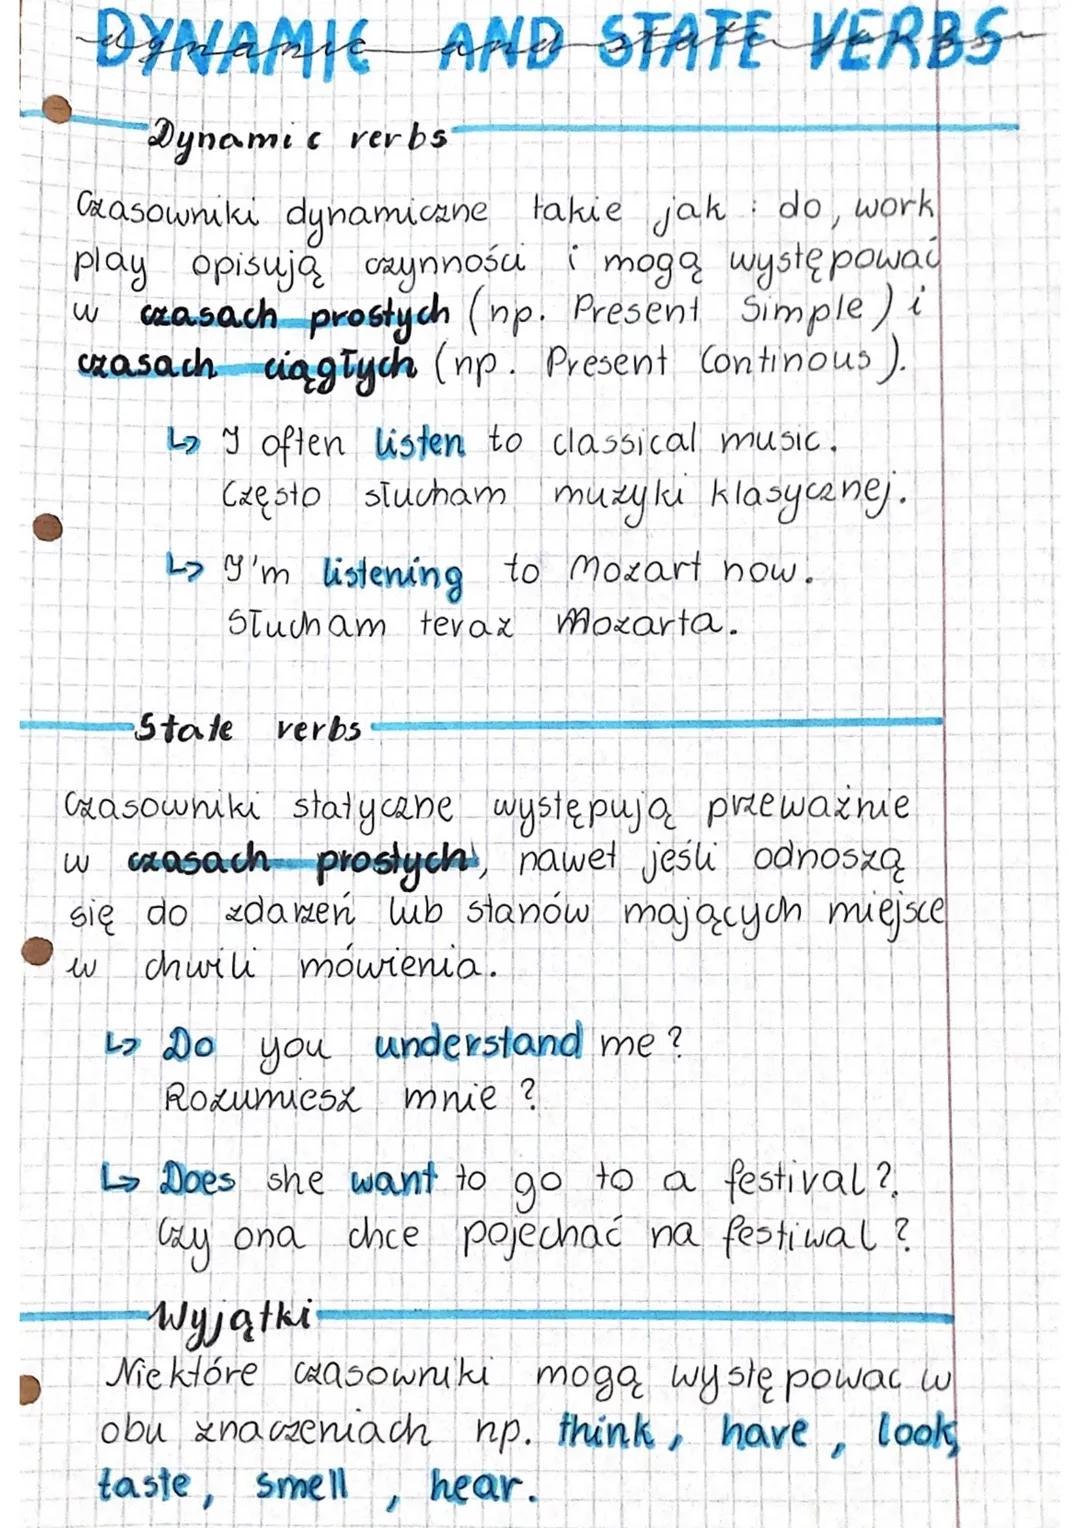 DYNAMIC AND STATE VERBS
dynamic and state verbs
Dynamic verbs
Czasowniki dynamiczne takie jak : do, work
play opisują czynności i mogą występować
w czasach prostych (np. Present Simple) i
czasach ciągłych (np. Present Continous).
↳ I often listen to classical music.
Często słucham muzyki klasycznej.
↳ I'm listening to Mozart now.
Słucham teraz Mozarta.
State verbs
Czasowniki statyczne występują przeważnie
w czasach prostych, nawet jeśli odnoszą
się do zdarzeń lub stanów mających miejsce
w chwili mówienia.
↳ Do you understand me?
Rozumiesz mnie?
↳ Does she want to go to a festival?
Czy ona chce pojechać na festiwal?
Wyjątki
Niektóre czasowniki mogą występowac w
obu znaczeniach np. think, have, look,
taste, smell, hear.